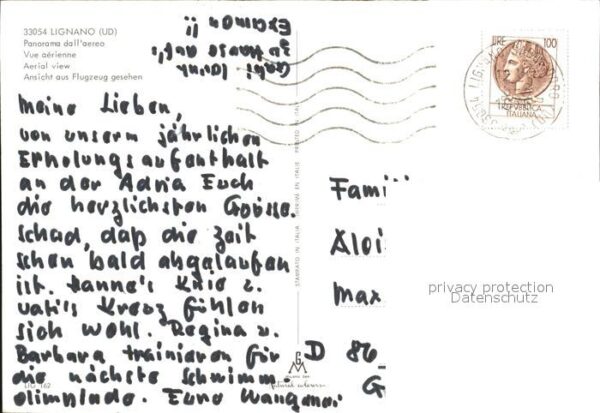 33054 LIGNANO (UD)
Panorama dall'aereo
Vue aérienne
Aerial view
Ansicht aus Flugzeug gesehen
Gabi lernt
zu Hause auf's
Examen !!
LIRE 100
REPUBBLICA
ITALIANA
Meine Lieben,
von unserm jährlichen
Erholungsaufenthalt
an der Adria Euch
die herzlichsten Grüsse.
Schad, daß die Zeit
schon bald abgelaufen
ist. Hanne's Knie u.
Vati's Kreuz fühlen
sich wohl. Regina u.
Barbara trainieren für
die nächste Schwimm-
olimpiade. Eure
Famil
Aloi
Max
D 86
G
STAMPATO IN ITALIA IMPRIMÉ EN ITALIE PRINTED IN ITALY
LIG 162
privacy protection
Datenschutz